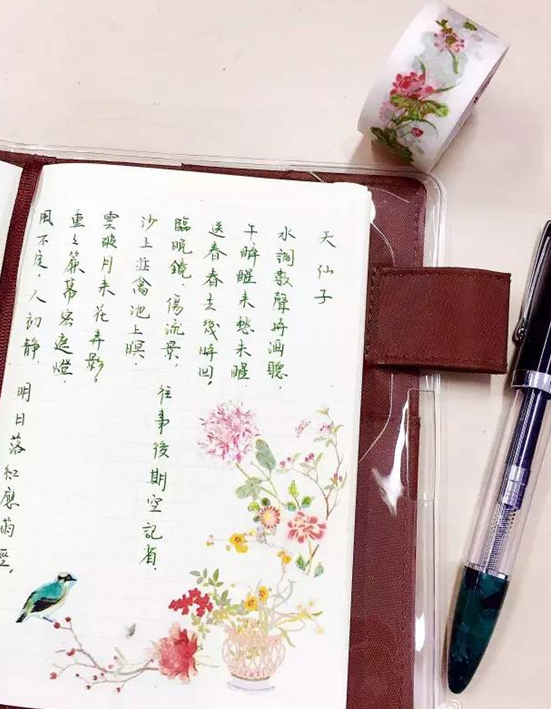 天仙子
水調數聲持酒聽.
午醉醒来愁未醒
送春春去幾時回,
臨晚鏡,傷流景,
往事後期空記省.
沙上並禽池上暝.
雲破月来花弄影,
重々簾幕密遮燈.
風不定,人初靜,
明日落紅應滿徑.